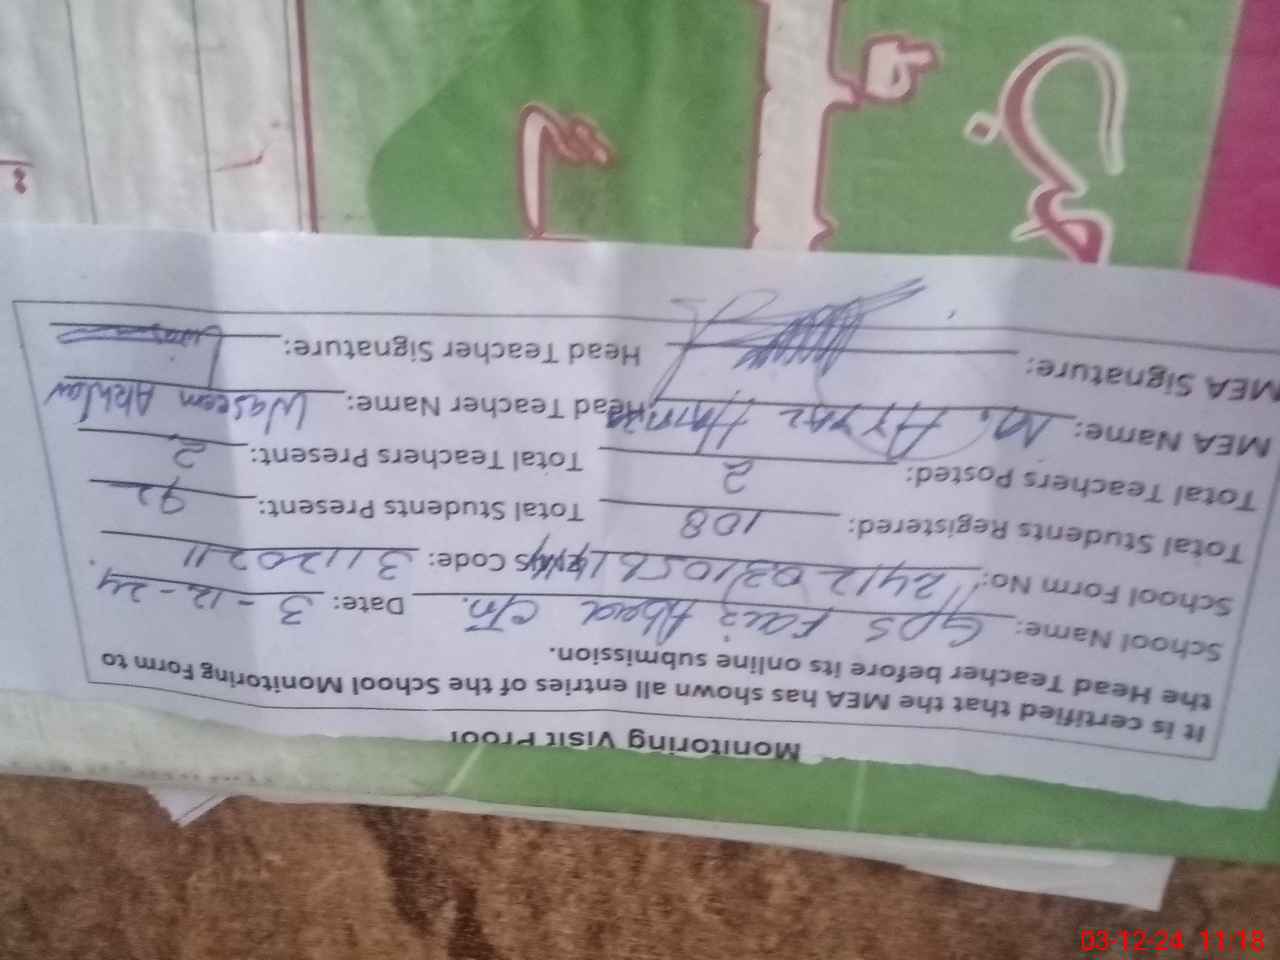 Monitoring Visit Proof
It is certified that the MEA has shown all entries of the School Monitoring Form to
the Head Teacher before its online submission.
School Name: GPS Faiz Abad Date: 3-12-24
School Form No: Code: 31120211
Total Students Registered: 108 Total Students Present: 92
Total Teachers Posted: 2 Total Teachers Present: 2
MEA Name: M. Head Teacher Name: Waseem
MEA Signature: Head Teacher Signature:
03-12-24 11:18